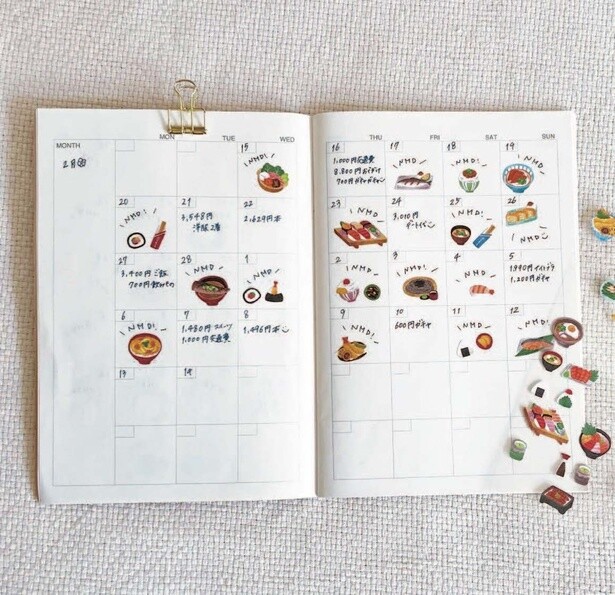 MONTH MON TUE WED THU FRI SAT SUN
2月
15
NMD!
16
1,000円交通費
8,800円
700円ガチャガチャ
17
NMD
18
NMD!
19
NMD!
20
NMD!
21
3,548円
洋服2着
22
2,629円本
23
NMD
24
3,010円
25
NMD!
26
NMD
27
3,400円ご飯
700円飲みもの
28
NMD
1
NMD!
2
NMD
3
NMD
4
NMD
5
1,200円ガチャ
6
NMD!
7
1,450円
1,000円交通費
8
1,496円本
9
NMD!
10
600円ガチャ
11
NMD
12
NMD!
13
14